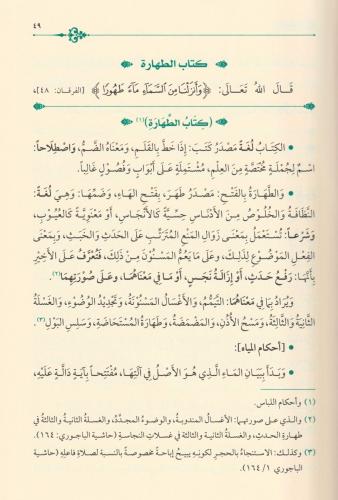 ٤٩
كتاب الطهارة
قَالَ اللهُ تَعَالَى: ﴿وَأَنزَلْنَا مِنَ السَّمَاءِ مَاءً طَهُورًا﴾ [الفرقان: ٤٨]،
(كِتَابُ الطَّهَارَةِ)(١)
• الكِتَابُ لُغَةً مَصْدَرُ كَتَبَ: إِذَا خَطَّ بِالقَلَمِ، وَمَعْنَاهُ الضَّمُّ، وَاصْطِلَاحًا:
اسْمٌ لِجُمْلَةٍ مُخْتَصَّةٍ مِنَ العِلْمِ، مُشْتَمِلَةٍ عَلَى أَبْوَابٍ وَفُصُولٍ غَالِبًا.
• وَالطَّهَارَةُ بِالفَتْحِ: مَصْدَرُ طَهَرَ، بِفَتْحِ الهَاءِ، وَضَمِّهَا: وَهِيَ لُغَةً:
النَّظَافَةُ وَالخُلُوصُ مِنَ الأَدْنَاسِ حِسِّيَّةً كَالأَنْجَاسِ، أَوْ مَعْنَوِيَّةً كَالعُيُوبِ،
وَشَرْعًا: تُسْتَعْمَلُ بِمَعْنَى زَوَالِ المَنْعِ المُتَرَتِّبِ عَلَى الحَدَثِ وَالخَبَثِ، وَبِمَعْنَى
الفِعْلِ المَوْضُوعِ لِذَلِكَ، وَعَلَى مَا يَعُمُّ المَسْنُونَ مِنْ ذَلِكَ، فَتُعَرَّفُ عَلَى الأَخِيرِ
بِأَنَّهَا: رَفْعُ حَدَثٍ، أَوْ إِزَالَةُ نَجَسٍ، أَوْ مَا فِي مَعْنَاهُمَا، وَعَلَى صُورَتِهِمَا(٢).
وَيُرَادُ بِمَا فِي مَعْنَاهُمَا: التَّيَمُّمُ، وَالأَغْسَالُ المَسْنُونَةُ، وَتَجْدِيدُ الوُضُوءِ، وَالغَسْلَةُ
الثَّانِيَةُ وَالثَّالِثَةُ، وَمَسْحُ الأُذُنِ، وَالمَضْمَضَةُ، وَطَهَارَةُ المُسْتَحَاضَةِ، وَسَلِسِ البَوْلِ(٣).
• [أحكام المياه]:
• وَبَدَأَ بِبَيَانِ المَاءِ الَّذِي هُوَ الأَصْلُ فِي آلَتِهَا، مُفْتَتِحًا بِآيَةٍ دَالَّةٍ عَلَيْهِ،
(١) وأحكام اللباس.
(٢) والذي على صورتهما: الأغسال المندوبة، والوضوء المجدَّد، والغسلة الثانية والثالثة في
طهارة الحدث، والغسلة الثانية والثالثة في غسلات النجاسة (حاشية الباجوري: ١٦٤).
(٣) وكذلك: الاستنجاء بالحجر لكونه يبيح إباحة مخصوصة بالنسبة لصلاة فاعله (حاشية
الباجوري ١/ ١٦٤).